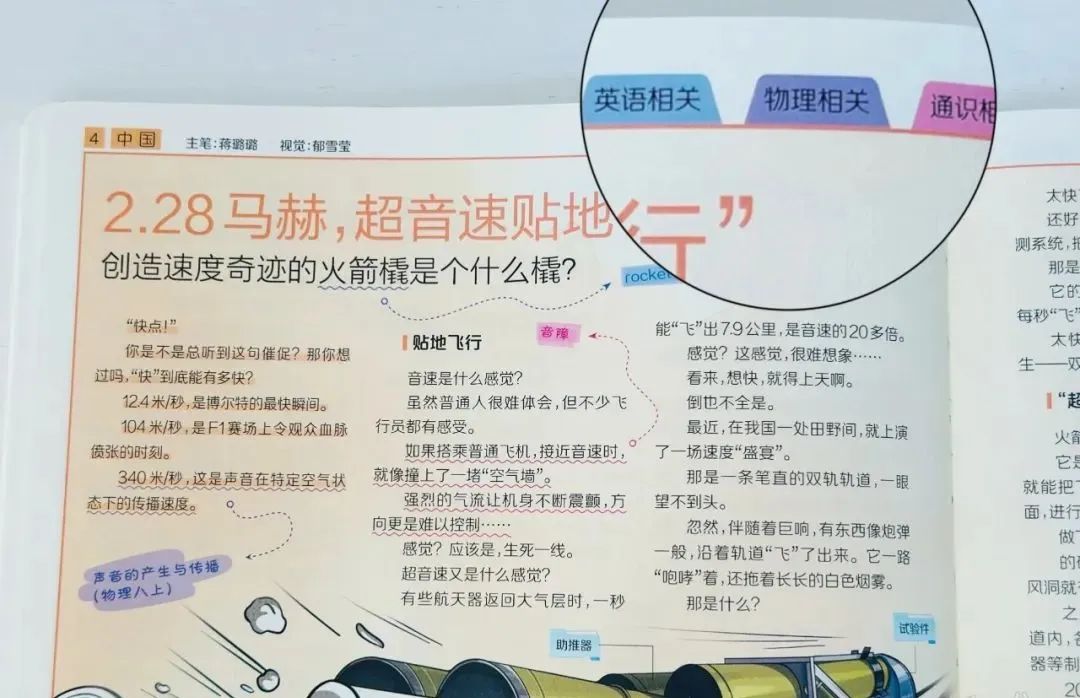 英语相关
物理相关
通识相
4 中国 主笔:蒋璐璐 视觉:郁雪莹
2.28马赫,超音速贴地行”
创造速度奇迹的火箭橇是个什么橇?
rocket
“快点!”
你是不是总听到这句催促?那你想
过吗,“快”到底能有多快?
12.4米/秒,是博尔特的最快瞬间。
104米/秒,是F1赛场上令观众血脉
偾张的时刻。
340米/秒,这是声音在特定空气状
态下的传播速度。
声音的产生与传播
(物理八上)
贴地飞行
音障
音速是什么感觉?
虽然普通人很难体会,但不少飞
行员都有感受。
如果搭乘普通飞机,接近音速时,
就像撞上了一堵“空气墙”。
强烈的气流让机身不断震颤,方
向更是难以控制……
感觉?应该是,生死一线。
超音速又是什么感觉?
有些航天器返回大气层时,一秒
能“飞”出7.9公里,是音速的20多倍。
感觉?这感觉,很难想象……
看来,想快,就得上天啊。
倒也不全是。
最近,在我国一处田野间,就上演
了一场速度“盛宴”。
那是一条笔直的双轨轨道,一眼
望不到头。
忽然,伴随着巨响,有东西像炮弹
一般,沿着轨道“飞”了出来。它一路
“咆哮”着,还拖着长长的白色烟雾。
那是什么?
助推器
试验件
太快
还好
测系统,
那是
它的
每秒“飞”
太快
生——双
“超
火箭
它是
就能把飞
面,进行
做
的
风洞就
之
道内,各
器等制
20